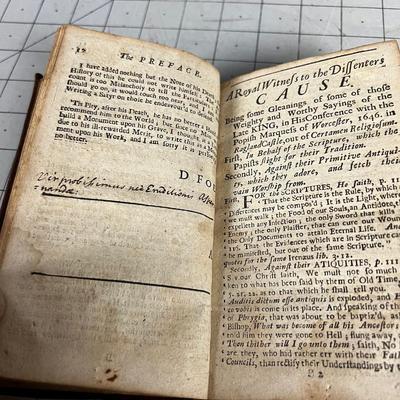 12 The PREFACE.
I have added nothing but the Note of his Death
History of this he could not write himself
count is too Melancholy to tell the
should go on, it would touch too near, and
Writing a Satyr on those he endeavour'd to def
'Tis Pity, after his Death, he has no better a P
recommend him to the World : And as I
build a Monument upon his Grave, I thought
due to his ill-rewarded Merit, to write this
ment upon his Work, and I am sorry it is perf
no better
D. FOE
Vir probissimus nec Eruditionis
nandae
A Royal Witness to the Dissenters
CAUSE.
Being some Gleanings of some of those
Weighty and Worthy Sayings of the
Late KING, in His Conference with the
Popish Marquess of Worcester, 1646. in
Ragland Castle, out of Certamen Religiosum.
First, In Behalf of the Scriptures, which the
Papists slight for their Tradition.
Secondly, Against their Primitive Antiqui-
ty, which they adore, and fetch their
Worship from.
First, FOR SCRIPTURES, He saith, p. 11
That the Scripture is the Rule, by which
Differences may be compos'd; It is the Light, wherein
we must walk; the Food of our Souls, an Antidote, th
expelleth any Infection; the only Sword that kills
Enemy; the only Plaister, that can cure our Wound
the Only Documents to attain Eternal Life. And
p. 115. That the Evidences which are in Scripture
be manifested, but out of the same Scripture."
quotes for the same Irenæus lib. 3. 12.
Secondly, Against their ATIQUITIES, p. 111
Saviour Christ saith, We must not so much
ken to what has been said by them of Old Time,
5. 21. 22. as to that which he shall tell you.
Auditis dictum esse antiquis is exploded, and E
co vobis is come in its place. And speaking of th
of Phrygia, that was about to be baptiz'd, ask'd
Bishop, What was become of all his Ancestors;
told him they were gone to Hell; flung away,
Then thither will I go unto them; saith, No
are they, who had rather err with their Fath
Councils, than rectify their Understandings by th
B 2